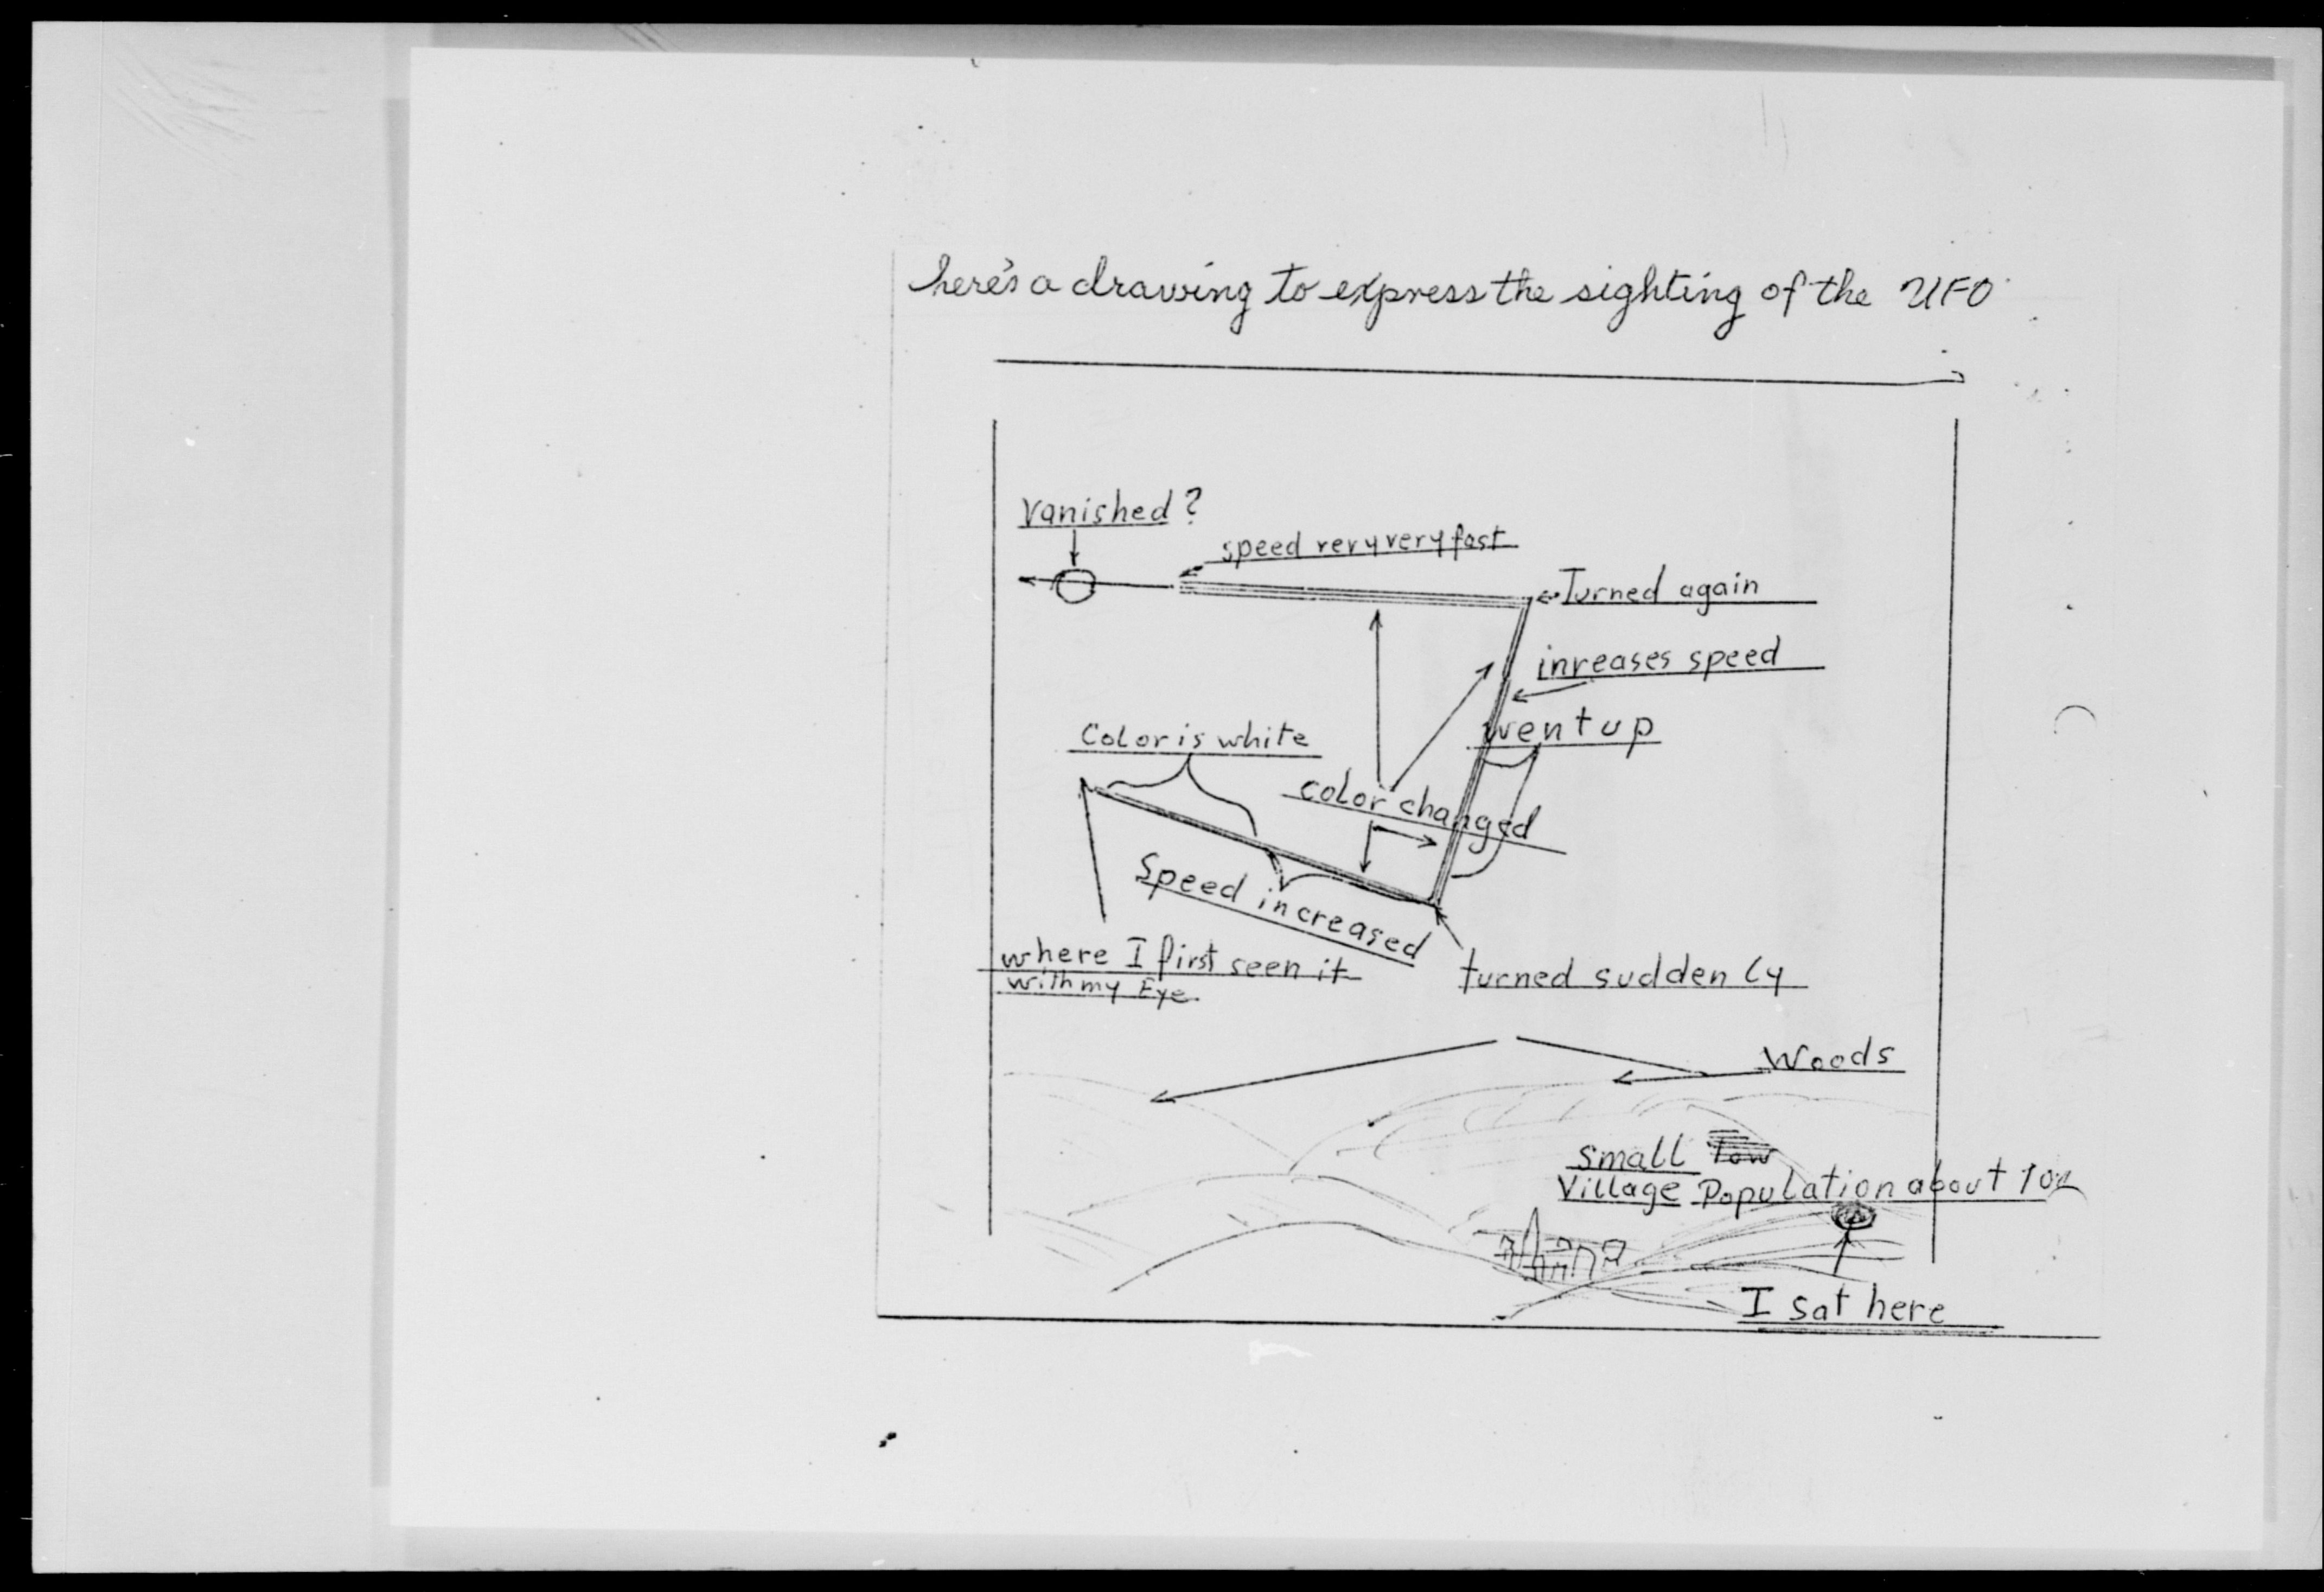 here's a drawing to express the sighting of the UFO
Vanished?
speed very very fast
Turned again
inreases speed
went up
Color is white
color changed
Speed increased
where I first seen it
with my Eye
turned suddenly
Woods
small
Village Population about
I sat here